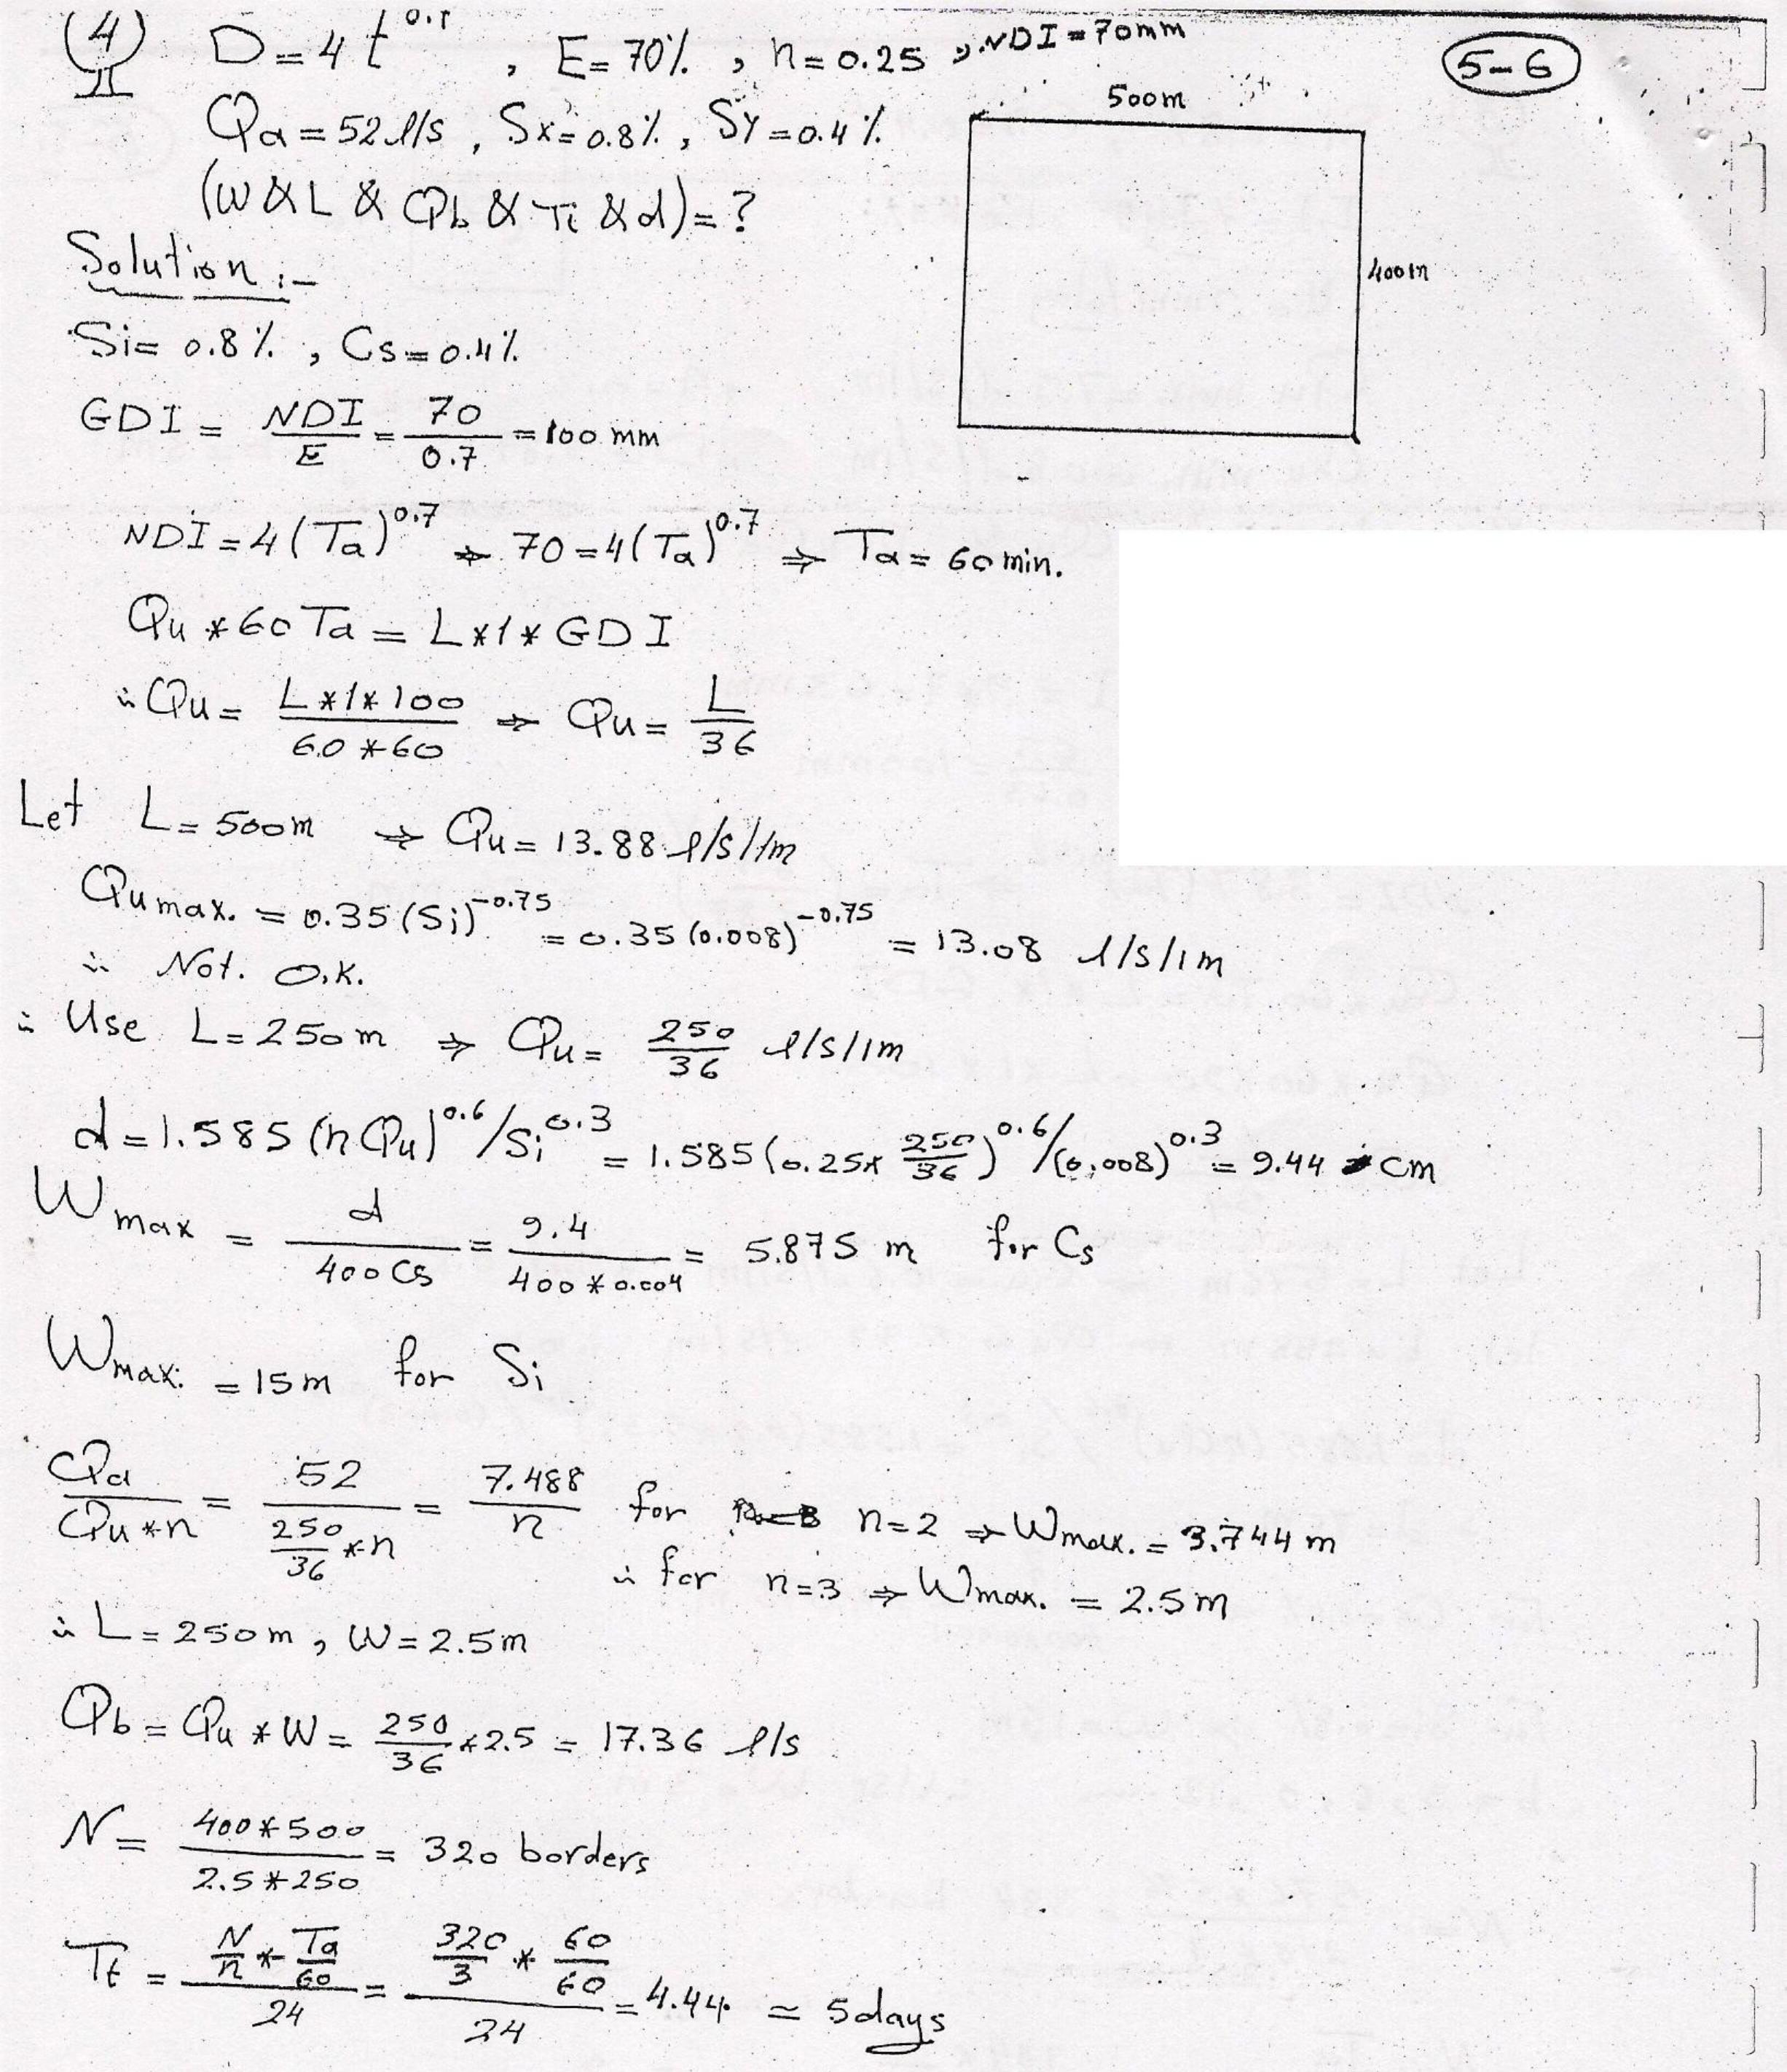 (4) D = 4 t^0.7 , E = 70% , n = 0.25 , NDI = 70mm
5-6
500m
Qa = 52 l/s , Sx = 0.8% , Sy = 0.4%
(W & L & Qb & Ti & d) = ?
400m
Solution :-
Si = 0.8% , Cs = 0.4%
GDI = NDI/E = 70/0.7 = 100 mm
NDI = 4(Ta)^0.7 ⇒ 70 = 4(Ta)^0.7 ⇒ Ta = 60 min.
Qu * 60 Ta = L * 1 * GDI
∴ Qu = (L * 1 * 100)/(60 * 60) ⇒ Qu = L/36
Let L = 500m ⇒ Qu = 13.88 l/s/1m
Qu max. = 0.35 (Si)^-0.75 = 0.35 (0.008)^-0.75 = 13.08 l/s/1m
∴ Not. O.K.
∴ Use L = 250m ⇒ Qu = 250/36 l/s/1m
d = 1.585 (n Qu)^0.6 / Si^0.3 = 1.585 (0.25 * 250/36)^0.6 / (0.008)^0.3 = 9.44 cm
W max = d/(400 Cs) = 9.4/(400 * 0.004) = 5.875 m for Cs
W max. = 15m for Si
Qa/(Qu * n) = 52/(250/36 * n) = 7.488/n for n = 2 ⇒ W max. = 3.744 m
∴ for n = 3 ⇒ W max. = 2.5m
∴ L = 250m , W = 2.5m
Qb = Qu * W = 250/36 * 2.5 = 17.36 l/s
N = (400 * 500)/(2.5 * 250) = 320 borders
Tt = (N/n * Ta/60)/24 = (320/3 * 60/60)/24 = 4.44 ≃ 5 days